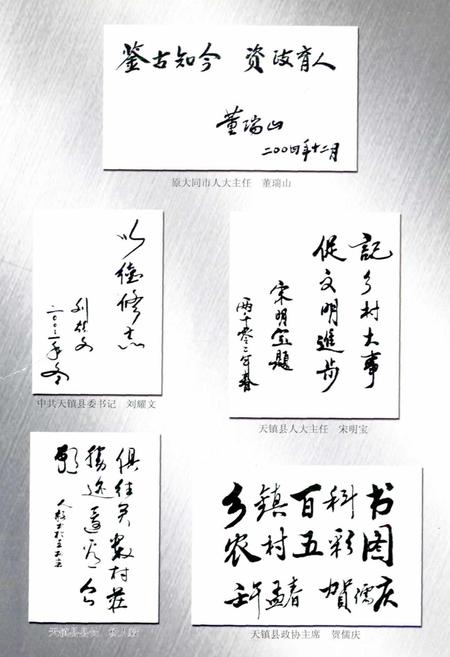 鉴古知今 资政育人
董瑞山
二00四年十二月
原大同市人大主任 董瑞山
以德修志
刘耀文
二00二年冬
中共天镇县委书记 刘耀文
记乡村大事
促文明进步
宋明宝题
两千零二年春
天镇县人大主任 宋明宝
俱往矣数村庄
天镇县县长
乡镇百科书
农村五彩图
壬午孟春 贺儒庆
天镇县政协主席 贺儒庆